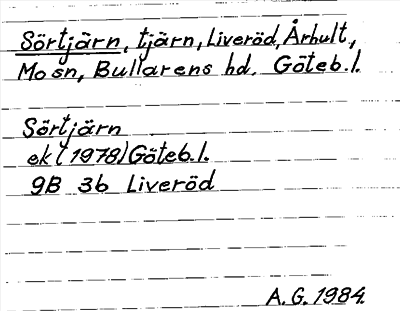 Sörtjärn, tjärn, Liveröd, Århult,
Mo sn, Bullarens hd. Göteb.l.
Sörtjärn
ek (1978) Göteb.l.
9B 3b Liveröd
A.G. 1984.